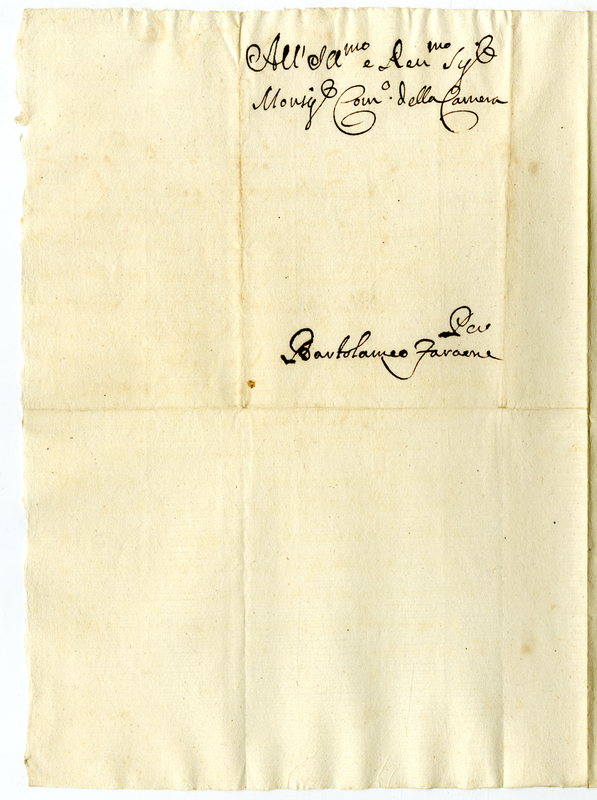 All' Ill.mo e Reu.mo Sig.r
Monsig.r Com.o della Camera
Per
Bartolameo